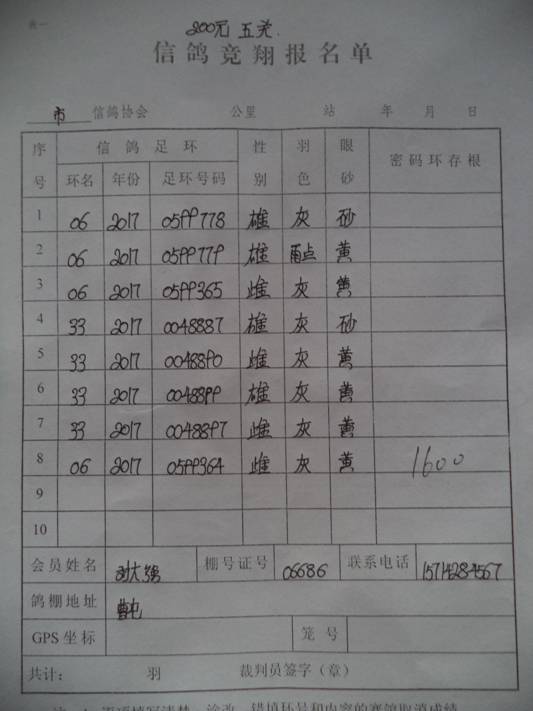 表一
200元 五关
信鸽竞翔报名单
市 信鸽协会 公里 站 年 月 日
序号 信鸽足环 性别 羽色 眼砂 密码环存根
环名 年份 足环号码
1 06 2017 0599778 雄 灰 砂
2 06 2017 0599779 雄 雨点 黄
3 06 2017 0599365 雌 灰 黄
4 33 2017 0048887 雄 灰 砂
5 33 2017 0048890 雌 灰 黄
6 33 2017 0048899 雄 灰 黄
7 33 2017 0048897 雌 灰 黄
8 06 2017 0599364 雌 灰 黄 1600
9
10
会员姓名 刘大强 棚号证号 06686 联系电话 15714284567
鸽棚地址 曹屯
GPS坐标 笼号
共计: 羽 裁判员签字（章）